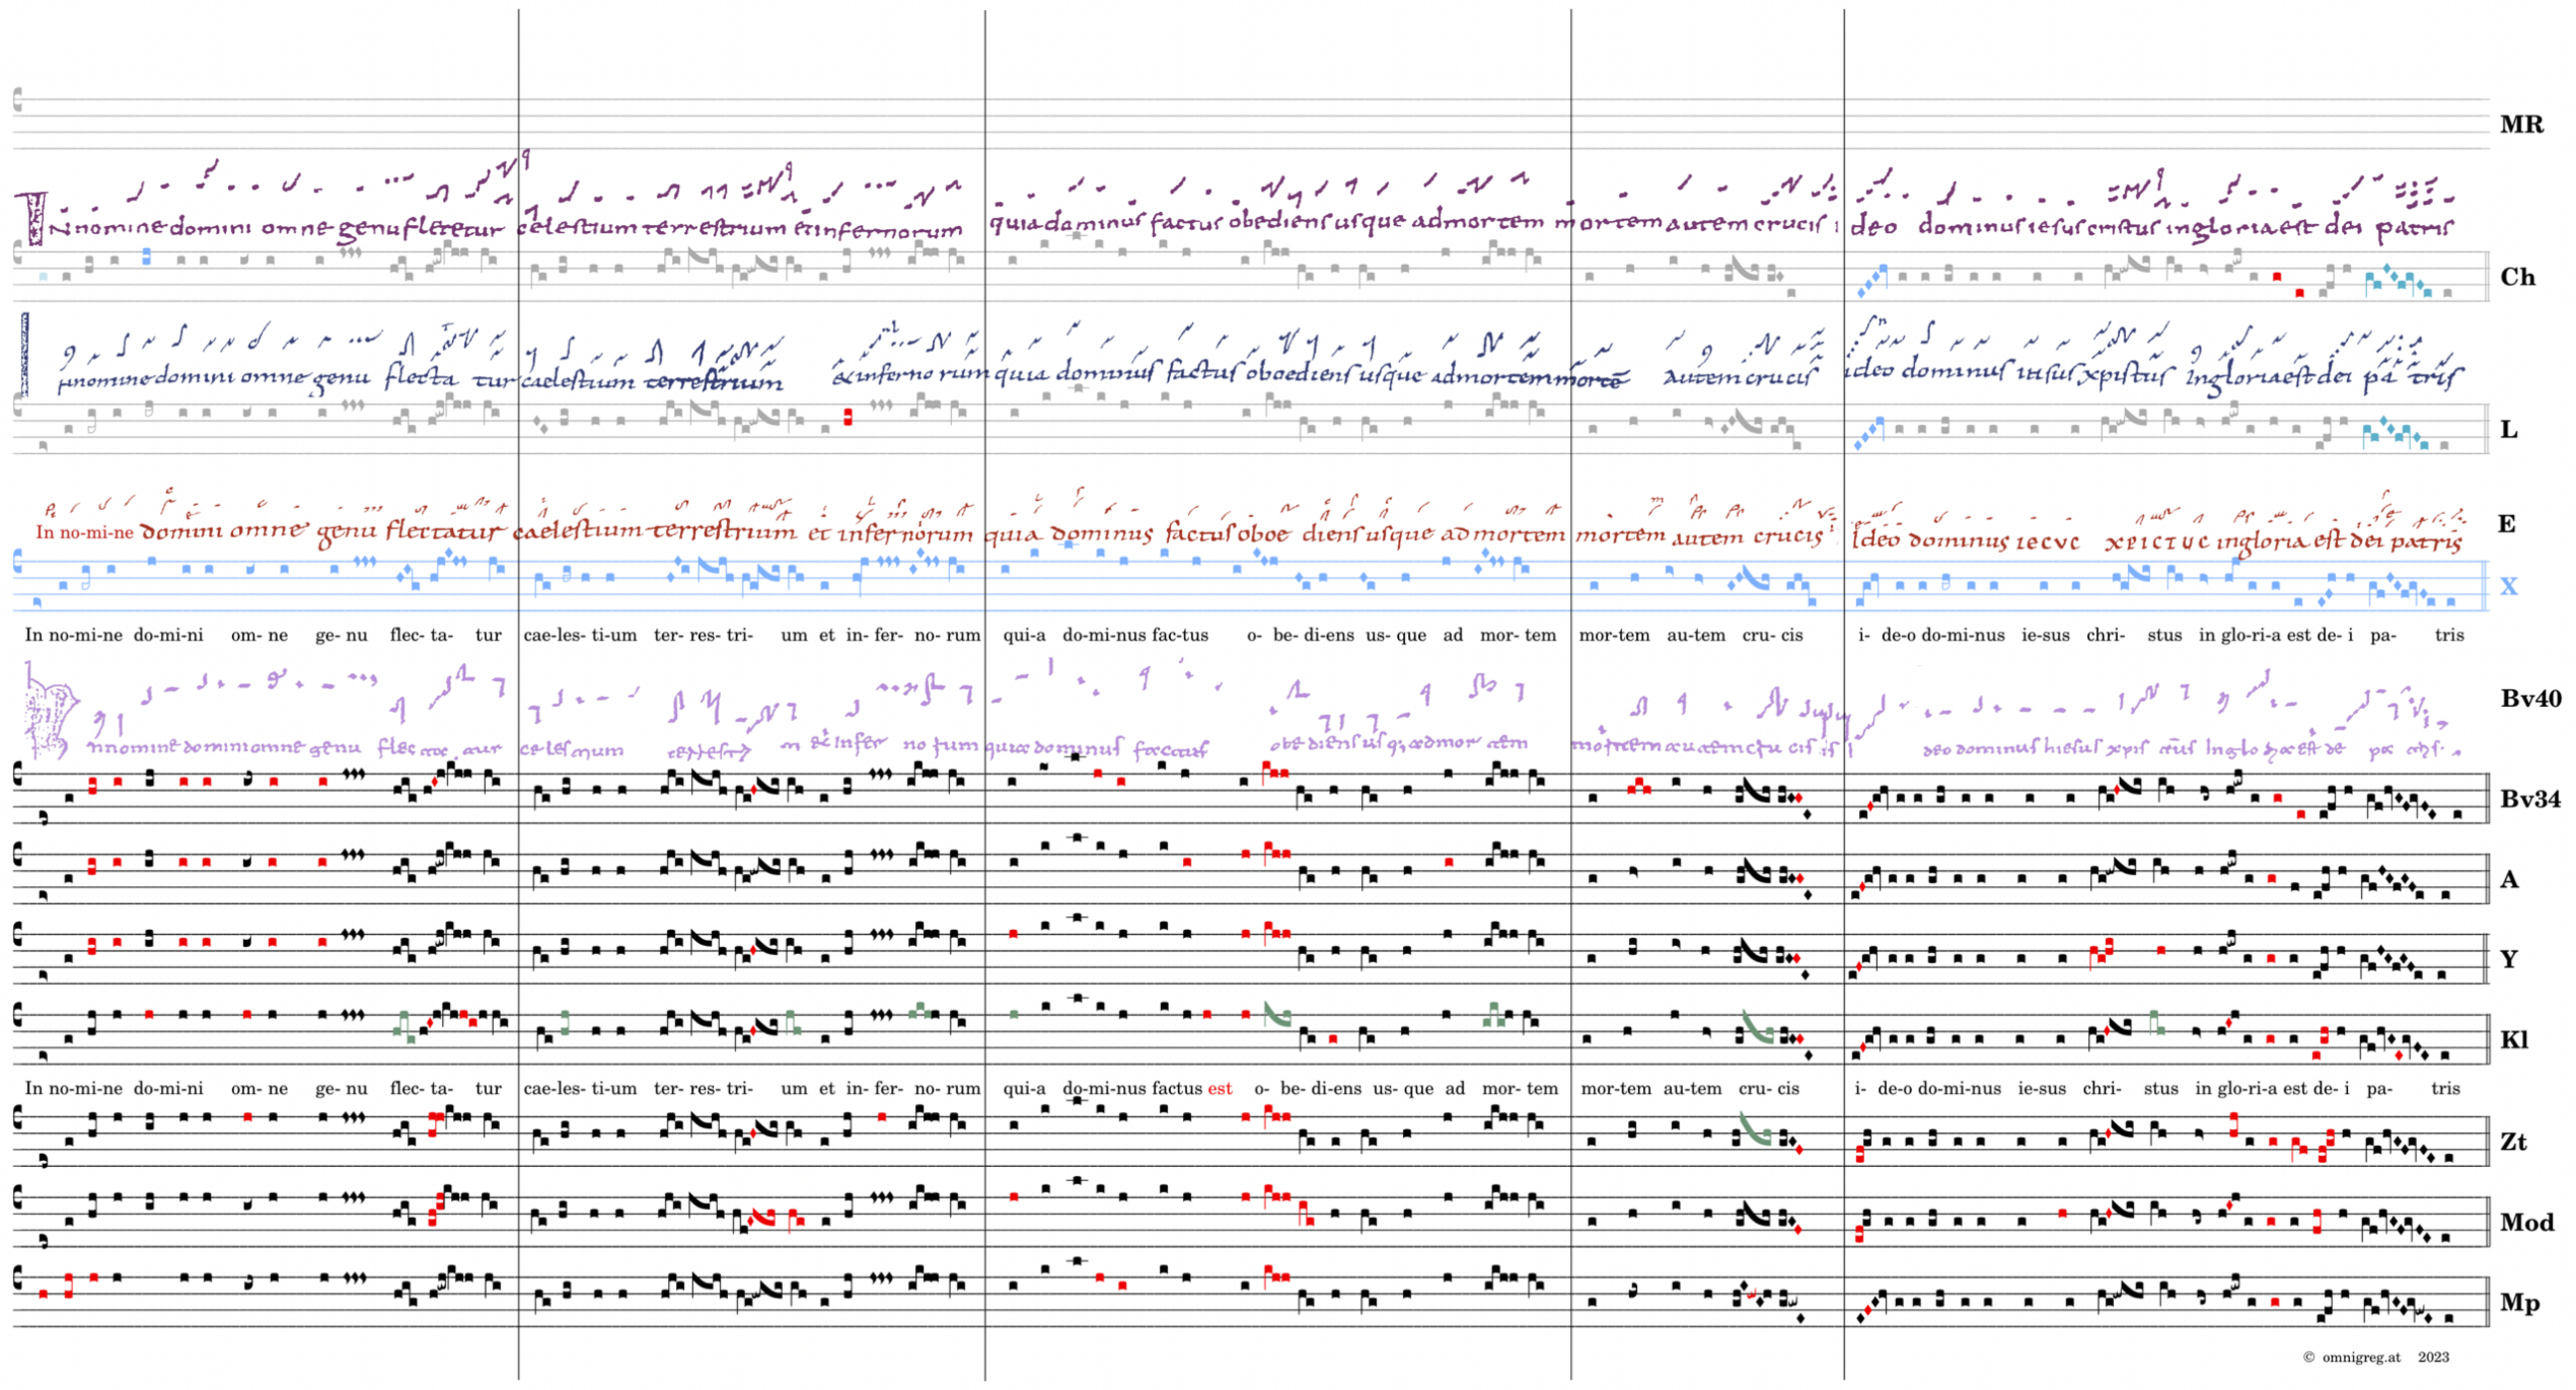 MR
In nomine domini omne genu flectetur celestium terrestrium et infernorum quia dominus factus obediens usque ad mortem mortem autem crucis ideo dominus iesus cristus in gloria est dei patris
Ch
In nomine domini omne genu flectatur caelestium terrestrium & inferno rum quia dominus factus oboediens usque ad mortem mortē autem crucis ideo dominus iesus xpistus in gloria est dei pa tris
L
In no-mi-ne domini omne genu flectatur caelestium terrestrium et infernorum quia dominus factus oboe diens usque ad mortem mortem autem crucis Ideo dominus iecvc xpictuc in gloria est dei patris
E
X
In no-mi-ne do-mi-ni om- ne ge- nu flec- ta- tur cae-les- ti-um ter- res- tri- um et in- fer- no- rum qui-a do-mi-nus fac-tus o- be- di-ens us- que ad mor- tem mor-tem au-tem cru- cis i- de-o do-mi-nus ie-sus chri- stus in glo-ri-a est de- i pa- tris
Bv40
Bv34
A
Y
Kl
In no-mi-ne do-mi-ni om- ne ge- nu flec- ta- tur cae-les- ti-um ter- res- tri- um et in- fer- no- rum qui-a do-mi-nus factus est o- be- di-ens us- que ad mor- tem mor-tem au-tem cru- cis i- de-o do-mi-nus ie-sus chri- stus in glo-ri-a est de- i pa- tris
Zt
Mod
Mp
© omnigreg.at 2023